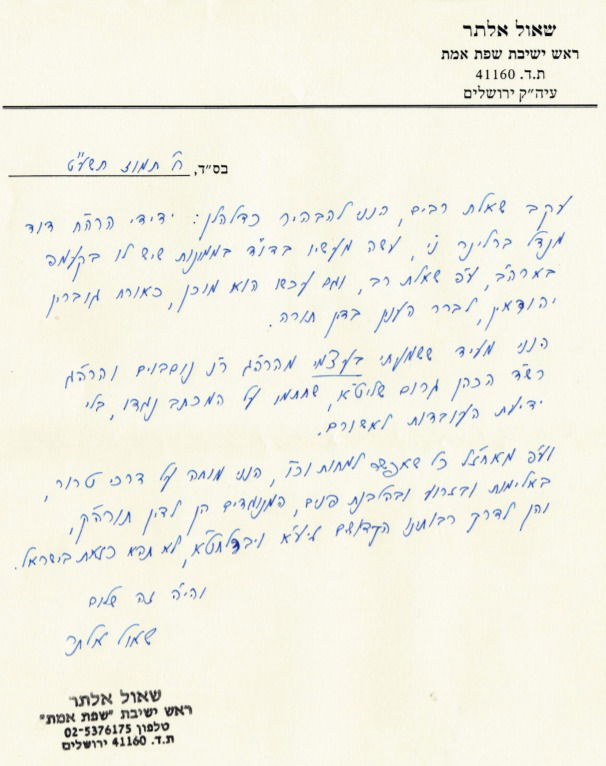 שאול אלתר
ראש ישיבת שפת אמת
ת.ד. 41160
עיה״ק ירושלים
בס״ד, ח' תמוז תשע"ט
עקב שאלת רבים, הנני להבהיר כדלהלן: ידידי הרה"ח דוד
מנדל ברלינר ני', עשה מעשיו בדו"ד בממונות שיש לו בקעמפ
בארה"ב, עפ"י שאלת רב, וגם עכשו הוא מוכן, כאורח גוברין
יהודאין, לברר הענין בדין תורה.
הנני מעיד ששמעתי בעצמי מהרה"ג ר"נ נוסבוים והרה"ג
רש"ד הכהן גרוס שליט"א, שחתמו על המכתב נגדו, בלי
ידיעת העובדות לאשורם.
ועפ"י מאחז"ל כל שאפשר למחות וכו', הנני מוחה על דרכי טרור,
באלימות ובזרוע ובהלבנת פנים, המנוגדים הן לדין תורה"ק,
והן לדרך רבותינו הקדושים זיע"א ויבדלחט"א, לא תהא כזאת בישראל.
והי' זה שלום
שאול אלתר
שאול אלתר
ראש ישיבת "שפת אמת"
טלפון 02-5376175
ת.ד. 41160 ירושלים